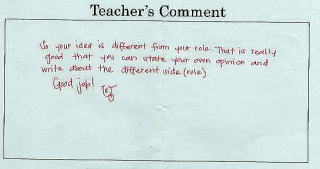 Teacher's Comment
So your idea is different from your role. That is really
good that you can state your own opinion and
write about the different side (role).
Good job!